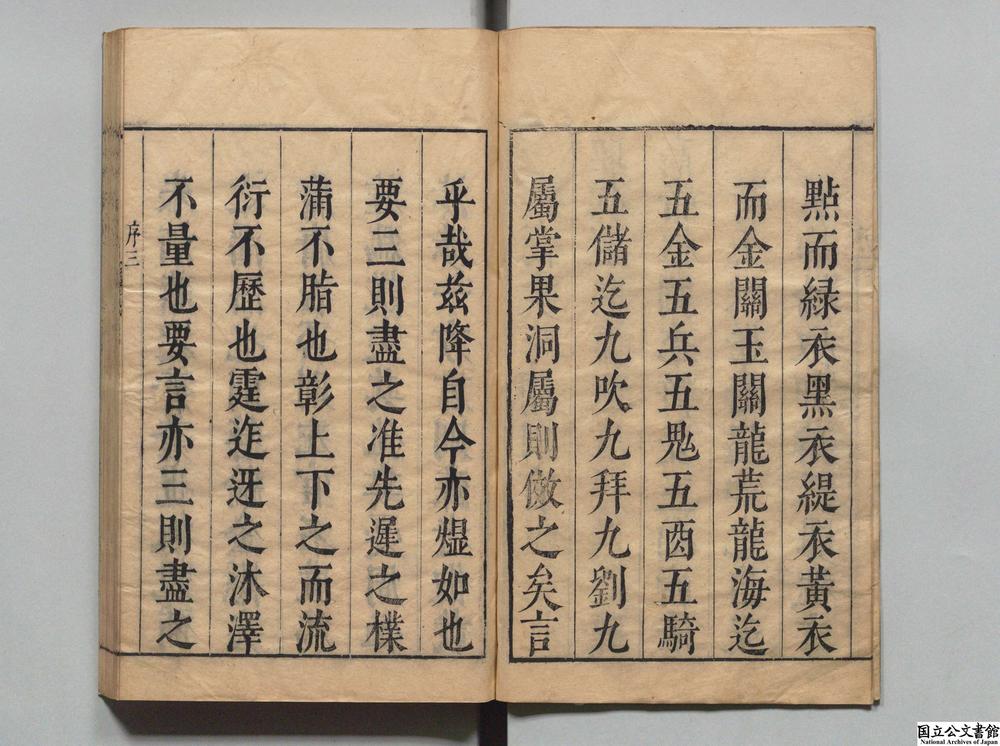 點而緑衣黑衣緹衣黃衣
而金關玉關龍荒龍海迄
五金五兵五鬼五酉五騎
五儲迄九吹九拜九劉九
屬掌果洞屬則倣之矣言
乎哉茲降自今亦熅如也
要三則盡之准先遲之樸
蒲不脂也彰上下之而流
衍不歷也霆迮迓之沐澤
不量也要言亦三則盡之
序三
国立公文書館
National Archives of Japan